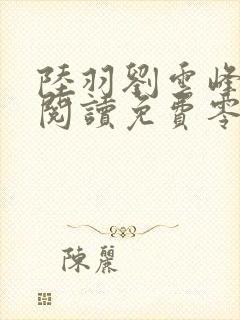 陸羽劉雲峰
閱讀免費零
陳麗